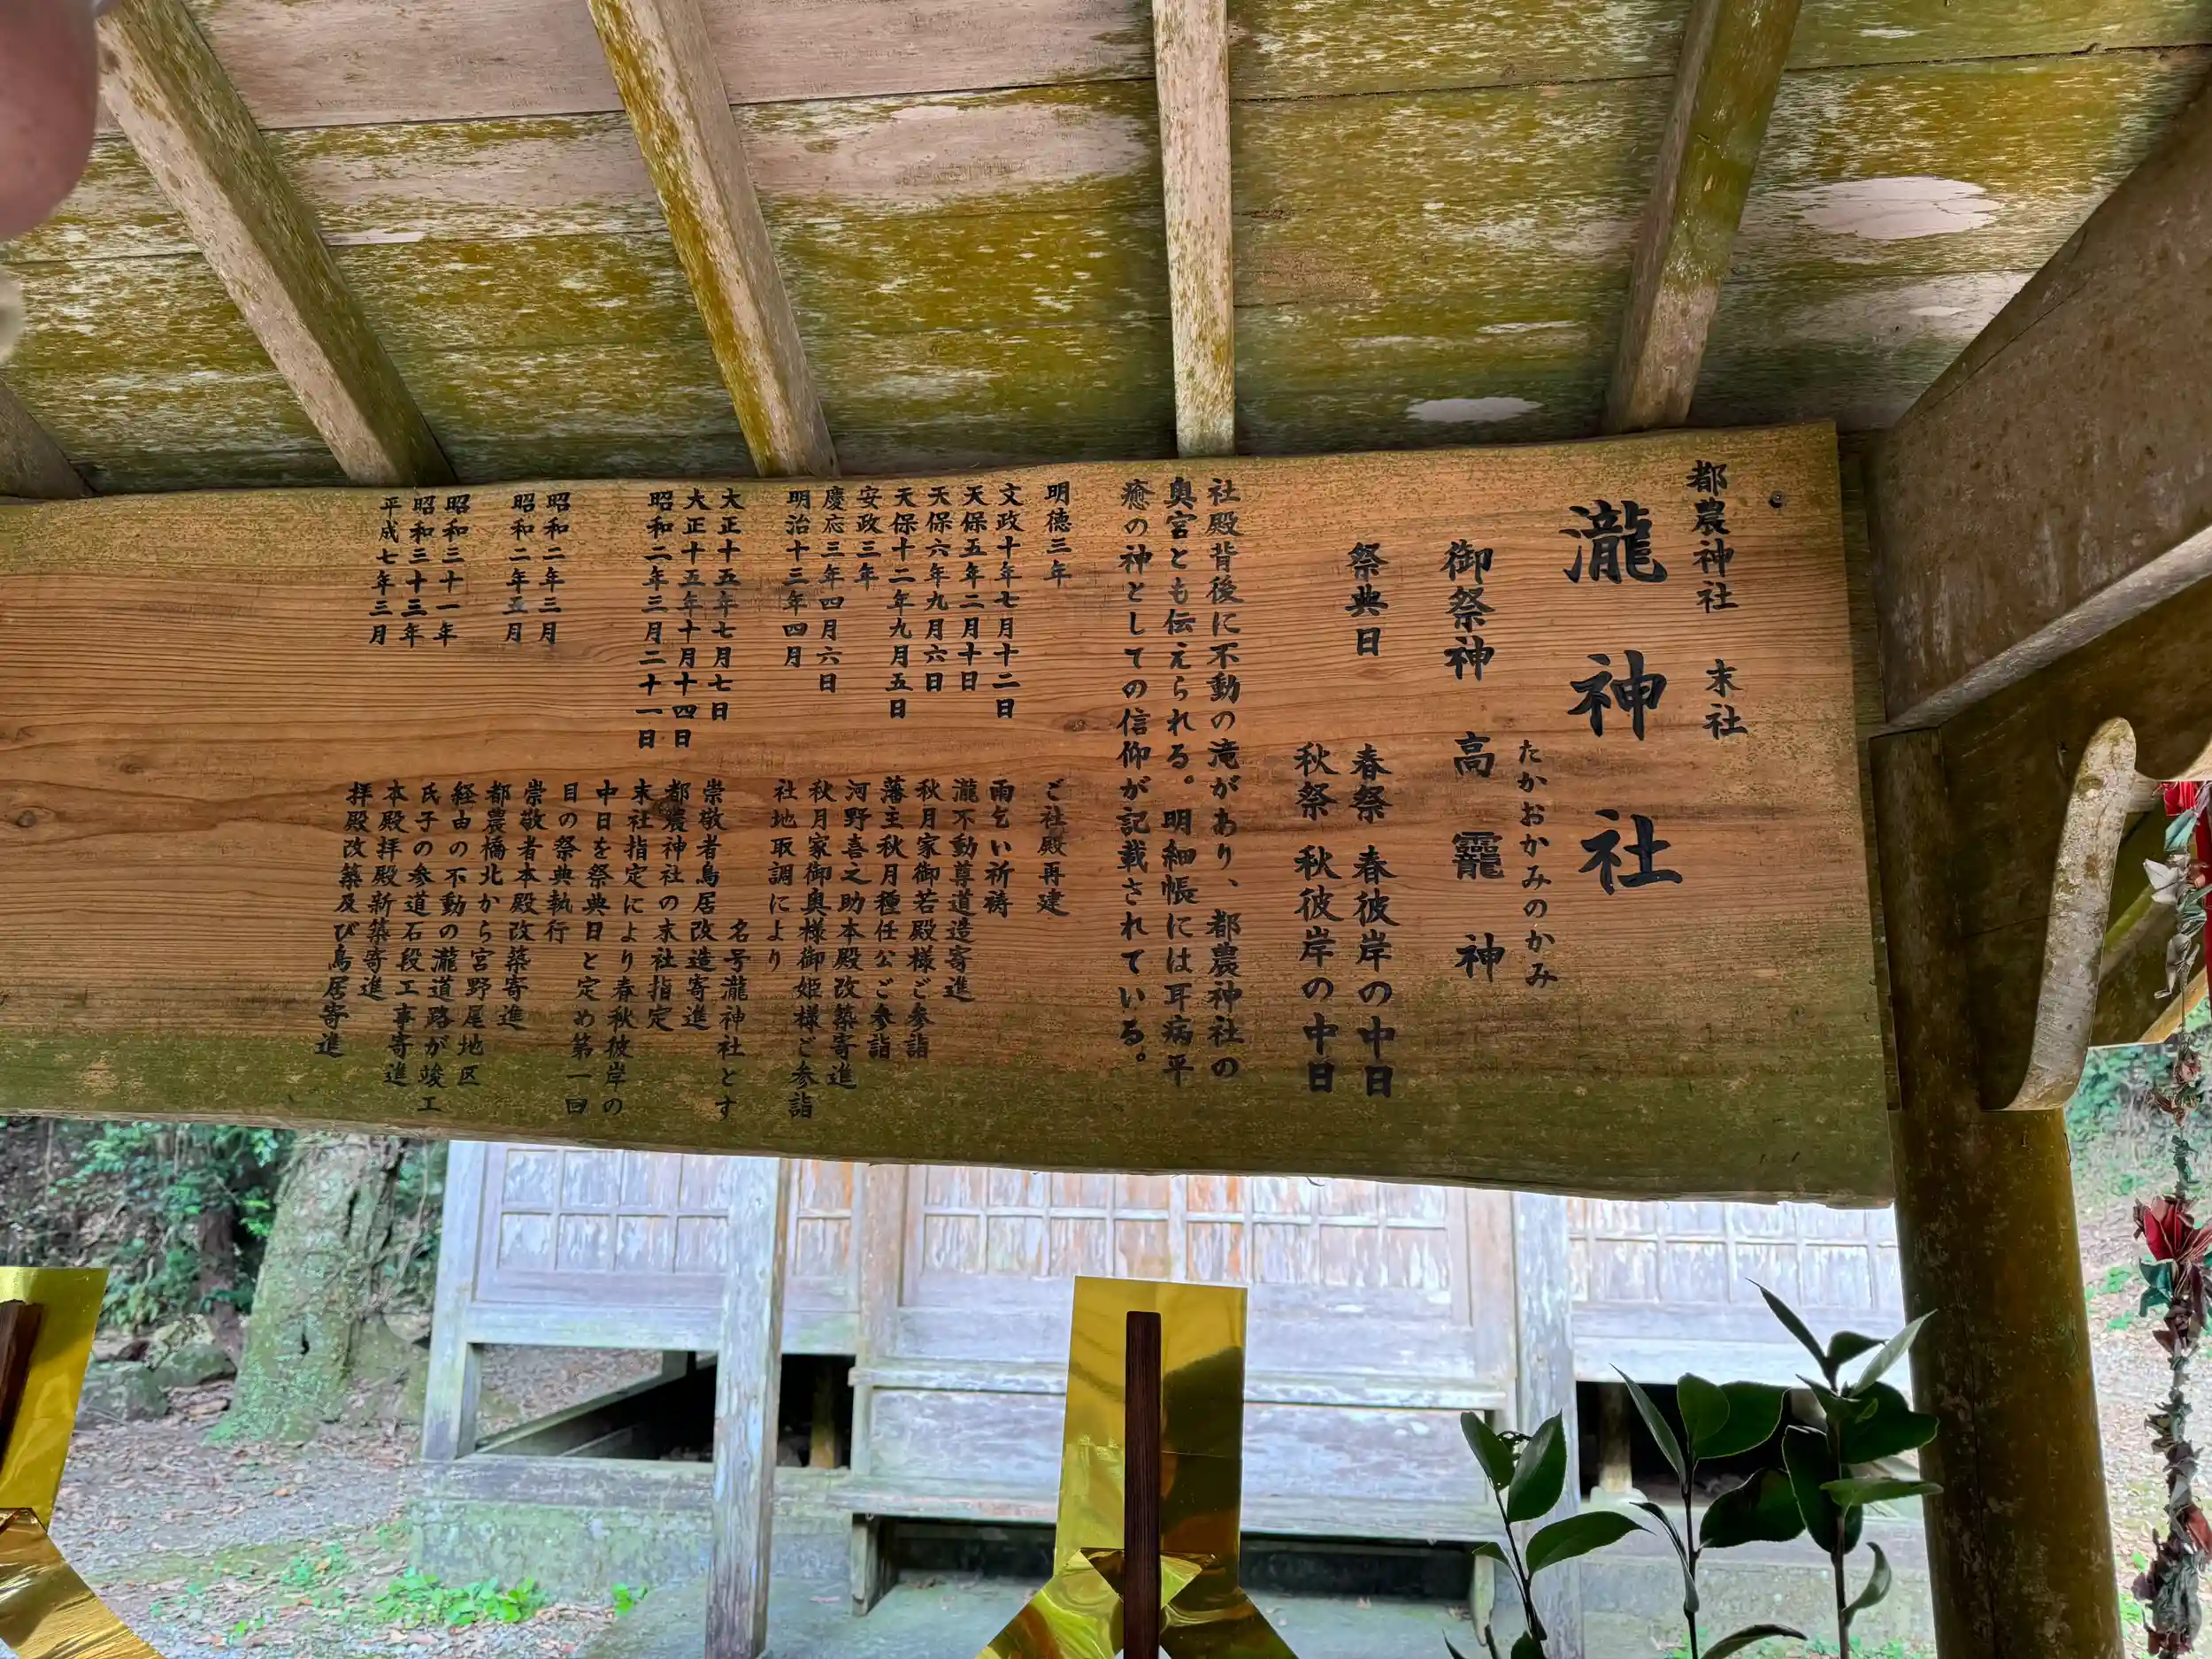 都農神社　末社
瀧神社
たかおかみのかみ
御祭神　高龗神
祭典日　春祭　春彼岸の中日
秋祭　秋彼岸の中日
社殿背後に不動の滝があり、都農神社の
奥宮とも伝えられる。明細帳には耳病平
癒の神としての信仰が記載されている。
明徳三年　ご社殿再建
文政十年七月十二日　雨乞い祈祷
天保五年二月十日　瀧不動尊道造寄進
天保六年九月六日　秋月家御若殿様ご参詣
天保十二年九月五日　藩主秋月種任公ご参詣
安政三年　河野喜之助本殿改築寄進
慶応三年四月六日　秋月家御奥様御姫様ご参詣
明治十三年四月　社地取調により
名号瀧神社とす
大正十五年七月七日　崇敬者鳥居改造寄進
大正十五年十月十四日　都農神社の末社指定
昭和二年三月二十一日　末社指定により春秋彼岸の
中日を祭典日と定め第一回
目の祭典執行
昭和二年三月　崇敬者本殿改築寄進
昭和二年五月　都農橋北から宮野尾地区
経由の不動の瀧道路が竣工
昭和三十一年　氏子の参道石段工事寄進
昭和三十三年　本殿拝殿新築寄進
平成七年三月　拝殿改築及び鳥居寄進